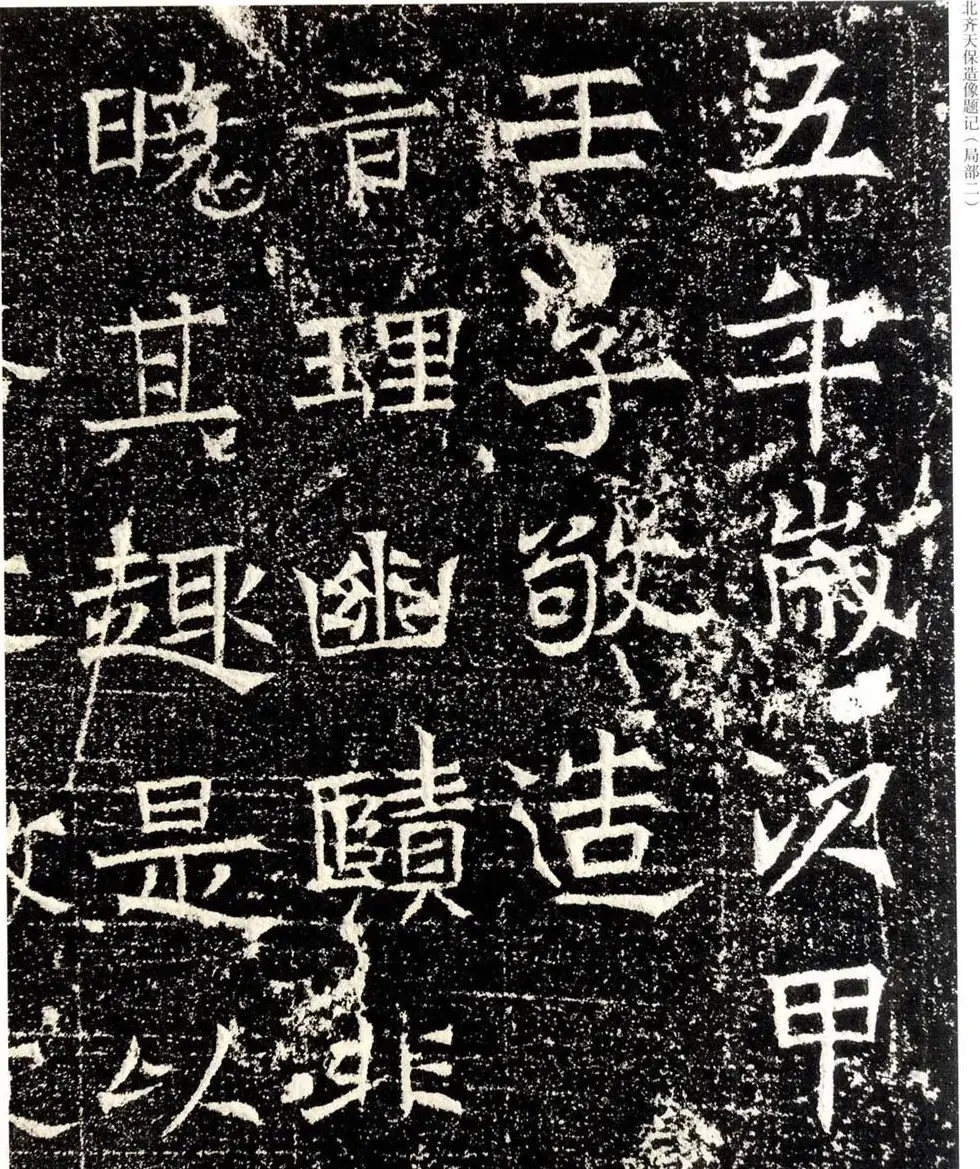 北齐天保造像题记（局部二）
五年歲次甲
壬子敬造
音理幽賾非
曉其趣是以